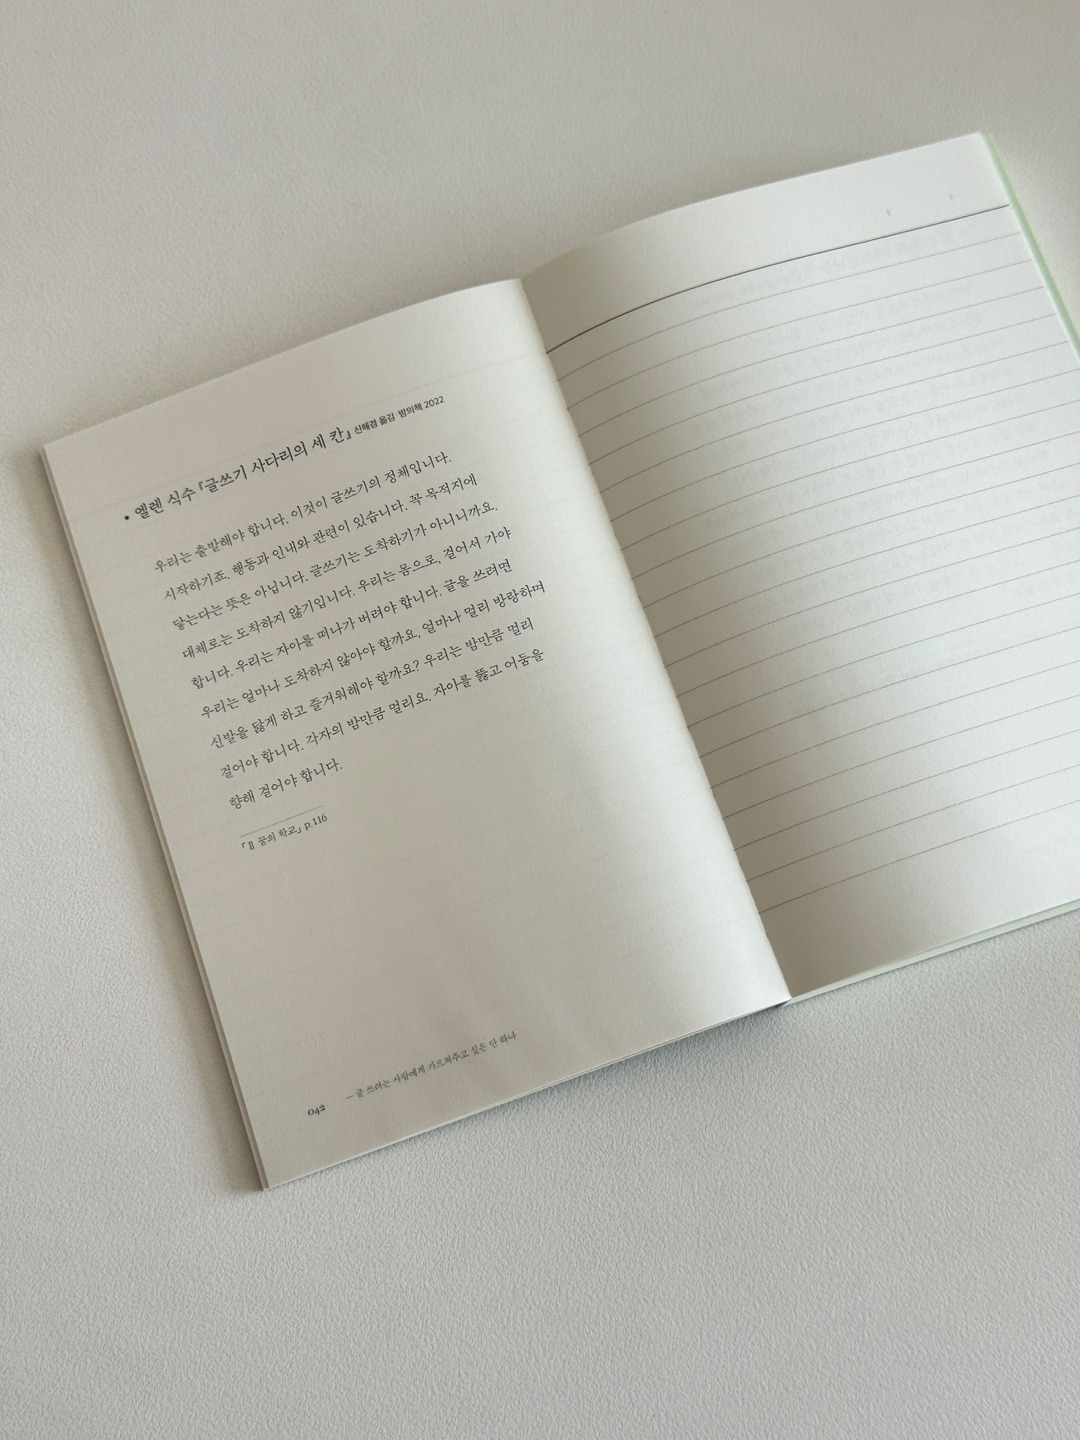 • 엘렌 식수 『글쓰기 사다리의 세 칸』 신해경 옮김 밤의책 2022
우리는 출발해야 합니다. 이것이 글쓰기의 정체입니다.
시작하기죠. 행동과 인내와 관련이 있습니다. 꼭 목적지에
닿는다는 뜻은 아닙니다. 글쓰기는 도착하기가 아니니까요.
대체로는 도착하지 않기입니다. 우리는 몸으로, 걸어서 가야
합니다. 우리는 자아를 떠나가 버려야 합니다. 글을 쓰려면
우리는 얼마나 도착하지 않아야 할까요, 얼마나 멀리 방랑하며
신발을 닳게 하고 즐거워해야 할까요? 우리는 밤만큼 멀리
걸어야 합니다. 각자의 밤만큼 멀리요. 자아를 뚫고 어둠을
향해 걸어야 합니다.
「Ⅱ 꿈의 학교」 p.116
042 — 글 쓰려는 사람에게 가르쳐주고 싶은 단 하나